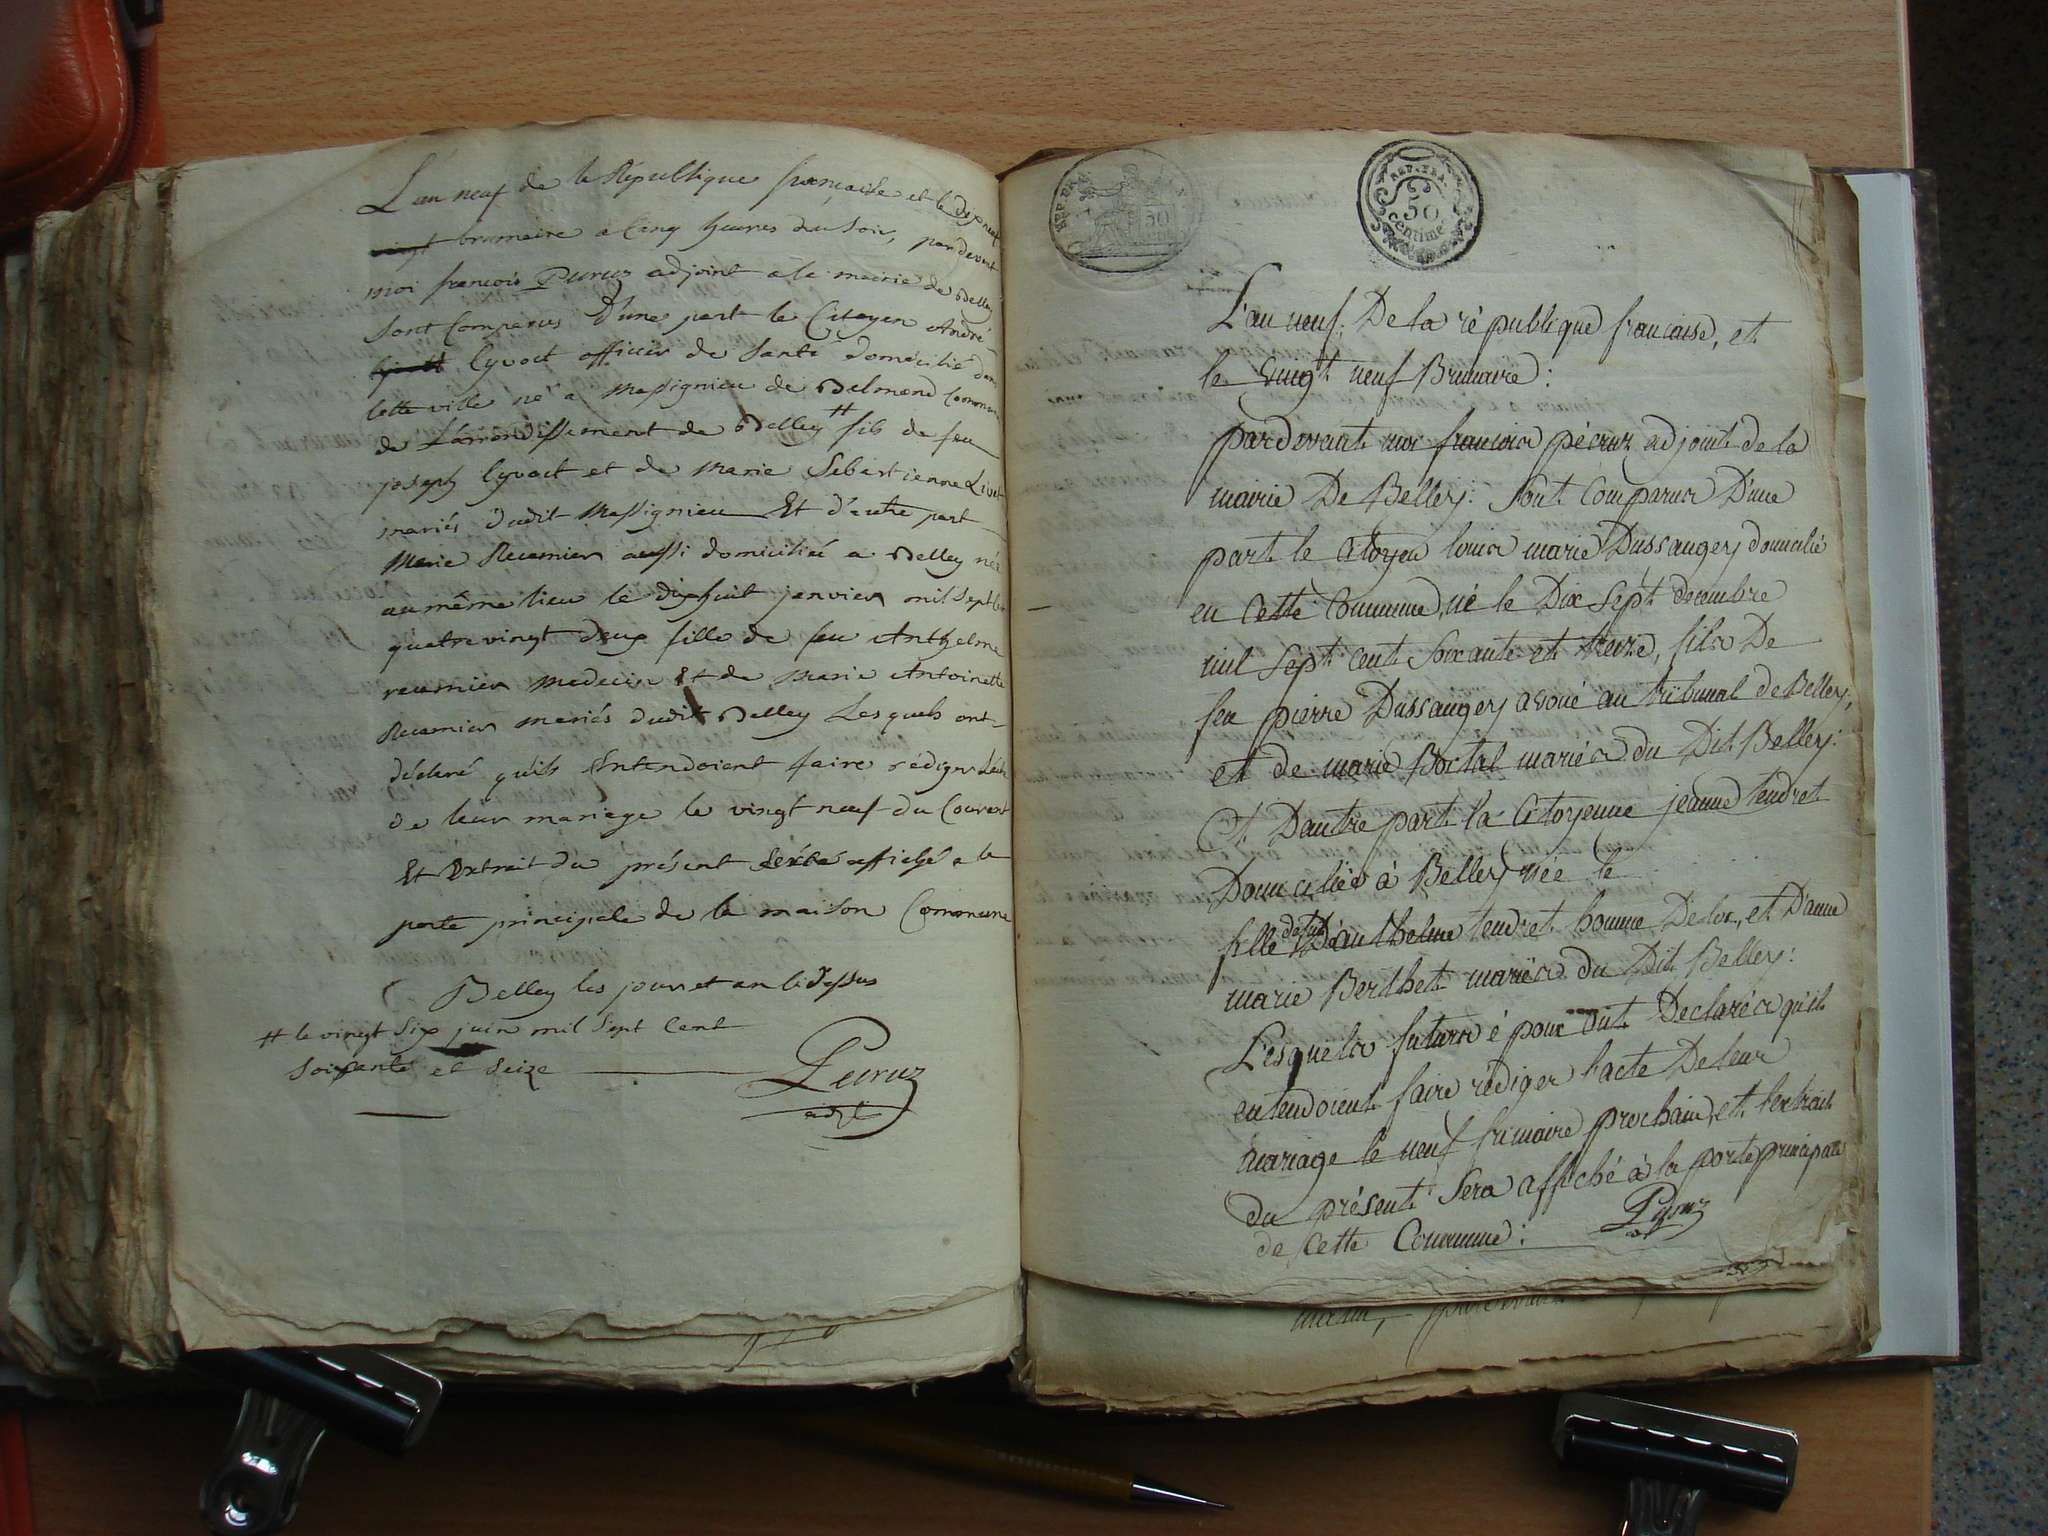 L'an neuf de la République française et le dix neuf
vingt brumaire a Cinq heures du Soir, pardevant
moi françois Peruz adjoint a la mairie de Belley
Sont Comparus D'une part le Citoyen André
Cyvoct officier de Santé domicilié dans
Cette ville né a Massignieu de Belmond Commune
de L'arrondissement de Belley # fils de feu
joseph Cyvoct et de Marie Sebastienne Livet
mariés dudit Massignieu Et d'autre part
Marie Recamier aussi domiciliée a Belley née
au même lieu le dixhuit janvier mil Sept Cent
quatrevingt deux fille de feu Anthelme
recamier medecin Et de Marie Antoinette
Recamier mariés dudit Belley Lesquels ont
déclaré qu'ils Entendoient faire rédiger L'acte
de leur mariage le vingt neuf du Courant
Et Extrait du présent Sera affiché a la
porte principale de la maison Commune
Belley les jour et an Cidessus
# le vingt Six juin mil Sept Cent
Soixante et Seize
Peruz
adjt
REP. FRA.
50
REP. FRA.
50
centime
L'an neuf De la république francaise, et
le vingt neuf Brumaire :
pardevant moi francois péruz adjoint de la
mairie De Belley : Sont Comparus D'une
part le Citoyen louis marie Dussaugey domicilié
en Cette Commune, né le Dix Sept decembre
mil Sept cent Soixante et treize, fils De
feu pierre Dussaugey avoué au tribunal de Belley,
et de marie Boctal mariés du Dit Belley :
Et Dautre part la Citoyenne jeanne tendret
Domiciliée à Belley née le
fille de feu anthelme tendret homme De loi, et D'anne
marie Berthet mariés du Dit Belley :
Lesquels futurs époux ont Declarés qu'ils
entendoient faire rédiger l'acte De leur
mariage le neuf frimaire prochain, et l'extrait
du présent Sera affiché à la porte principale
de Cette Commune :
Peruz